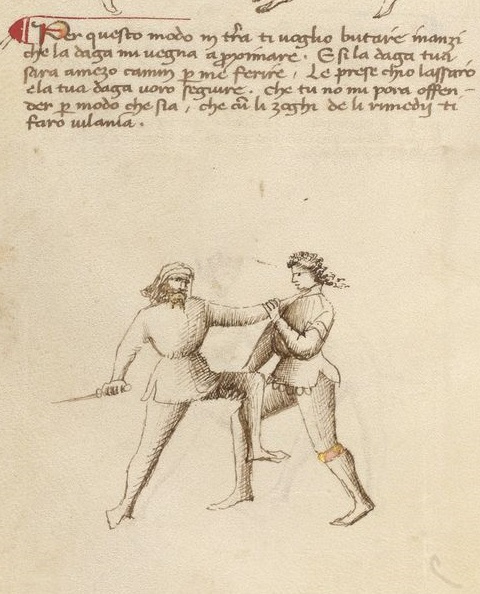 Per questo modo in tera ti voglio butare inanzi
che la daga mi vegna aproximare. E si la daga tua
sara amezo camin per me ferire, Le prese ch'io lassarò
e la tua daga vorò seguire. che tu no mi porà offen-
der per modo che sia, che cum li zoghi de li rimedij ti
farò vilania.